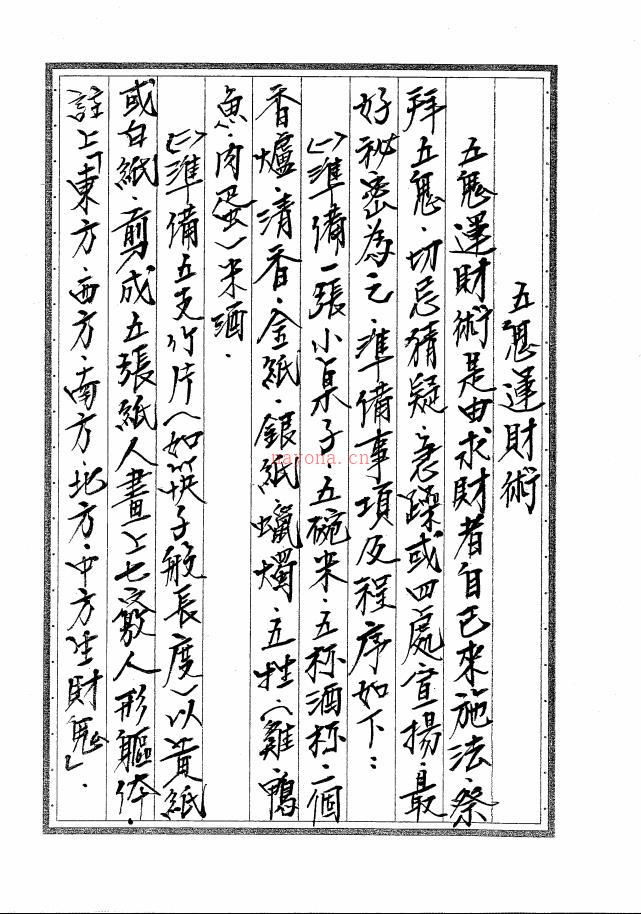 五鬼運財術
五鬼運財術是由求財者自己來施法、祭
拜五鬼、切忌猜疑、急躁或四處宣揚、最
好祕密為之、準備事項及程序如下：
(一)準備一張小桌子、五碗米、五杯酒杯、一個
香爐、清香、金紙、銀紙、蠟燭、五牲(雞、鴨
魚、肉蛋)米酒.
(二)準備五支竹片(如筷子般長度)以黃紙
或白紙、剪成五張紙人畫上七竅人形軀体、
註上「東方、西方、南方、北方、中方生財鬼」.
nayona.cn